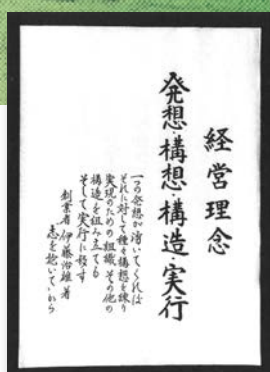 経営理念
発想・構想・構造・実行
一つの発想が湧いてくれば
それに対して種々構想を練り
実現のための組織、その他の
構造を組み立てる
そして実行に移す
創業者 伊藤治雄著
志を抱いてから